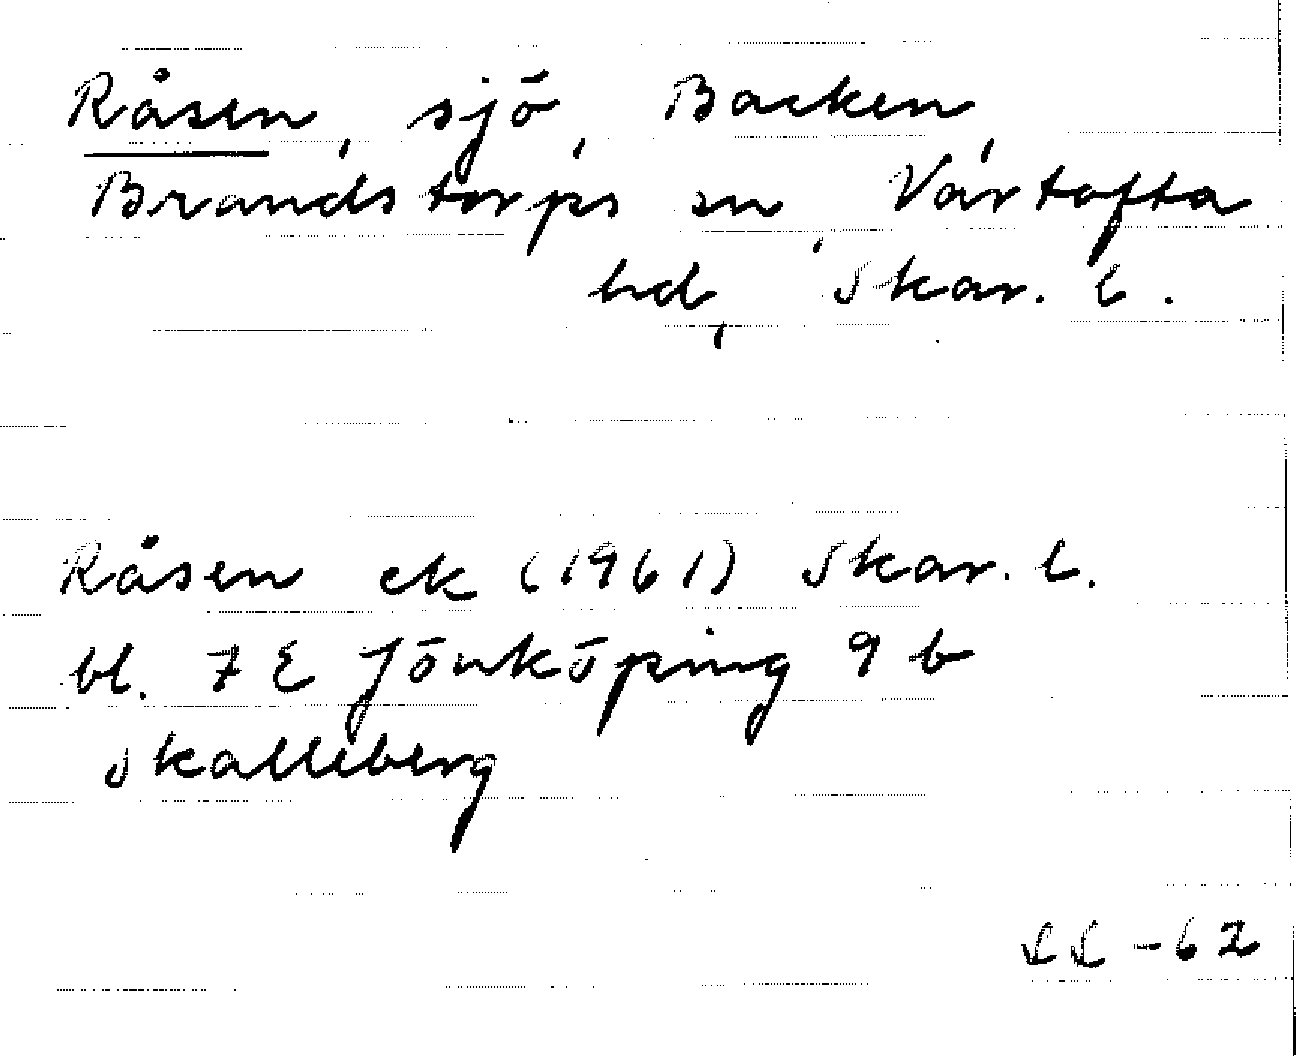 Råsen, sjö, Backen,
Brandstorps sn, Vartofta
hd, Skar. l.
Råsen ek (1961) Skar. l.
bl. 7 E Jönköping 9 b
Skalleberg
LL -62